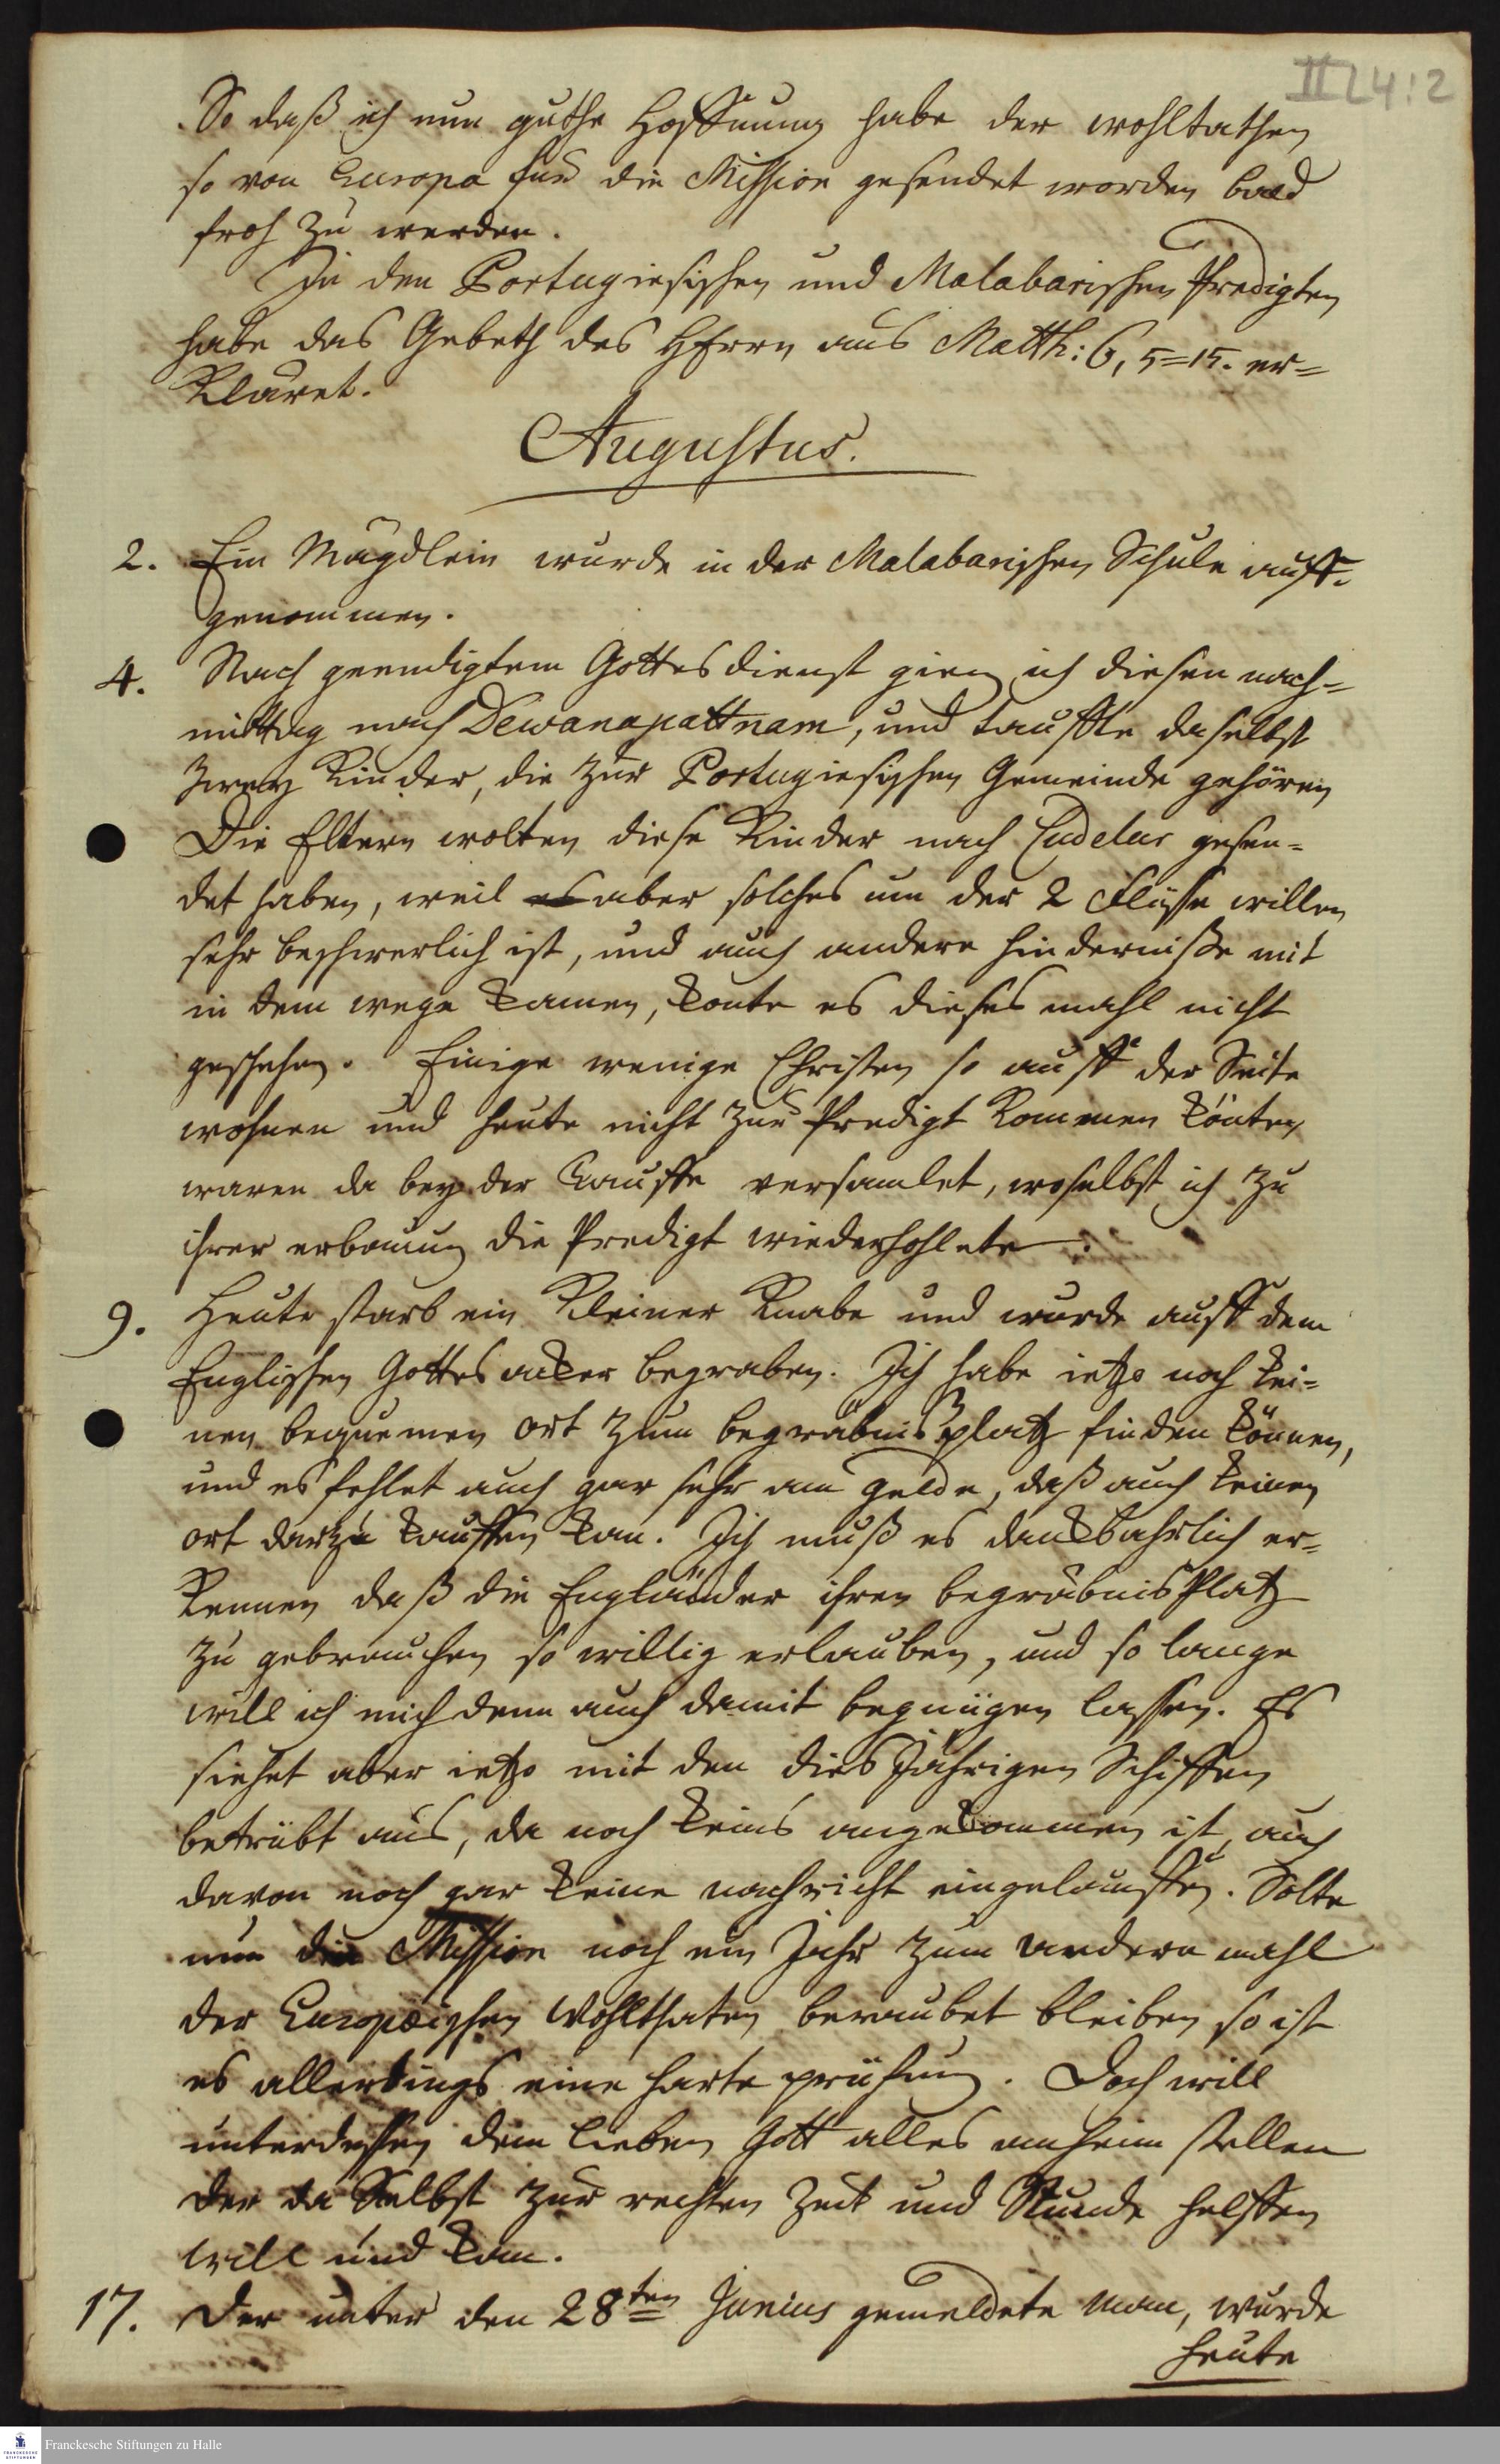 II 24:2
So daß ich nun guthe Hoffnung habe der wohltathen
so von Europa fur die Mission gesendet worden bald
froh zu werden.
In den Portugiesischen und Malabarischen Predigten
habe das Gebeth des HErrn aus Matth: 6, 5=15. er=
klaret.
Augustus.
2. Ein Mägdlein wurde in der Malabarischen Schule auff-
genommen.
4. Nach geendigtem Gottesdienst gieng ich diesen nach=
mittag nach Dewanapattnam, und tauffte daselbst
zwey Kinder, die zur Portugiesischen Gemeinde gehören
Die Eltern wolten diese Kinder nach Cudelur gesen=
det haben, weil es aber solches um der 2 Flüsse willen
sehr beschwerlich ist, und auch andere hinderniße mit
in dem wege kamen, konte es dieses mahl nicht
geschehen. Einige wenige Christen so auff der Seite
wohnen und heute nicht zur Predigt kommen könten
waren da bey der Tauffe versamlet, woselbst ich zu
ihrer erbauung die Predigt wiederhohlete.
9. Heute starb ein kleiner Knabe und wurde auff dem
Englischen Gottesacker begraben. Ich habe ietzo noch kei=
nen bequemen ort zum begräbnisplatz finden können,
und es fehlet auch gar sehr am gelde, daß auch keinen
ort darzu kauffen kan. Ich muß es danckbahrlich er=
kennen daß die Engländer ihren begräbnis Platz
zu gebrauchen so willig erlauben, und so lange
will ich mich denn auch damit begnügen lassen. Es
siehet aber ietzo mit den dies Jährigen Schiffen
betrübt aus, da noch keins angekommen ist, auch
davon noch gar keine nachricht eingelauffen. Solte
nun die Mission noch ein Jahr zum andern mahl
der Europæischen Wohlthaten beraubet bleiben so ist
es allerdings eine harte prüfung. Doch will
unterdessen dem lieben Gott alles anheim stellen
der da Selbst zur rechten Zeit und Stunde helffen
will und kan.
17. Der unter den 28ten Junius gemeldete man, wurde
heute
Franckesche Stiftungen zu Halle